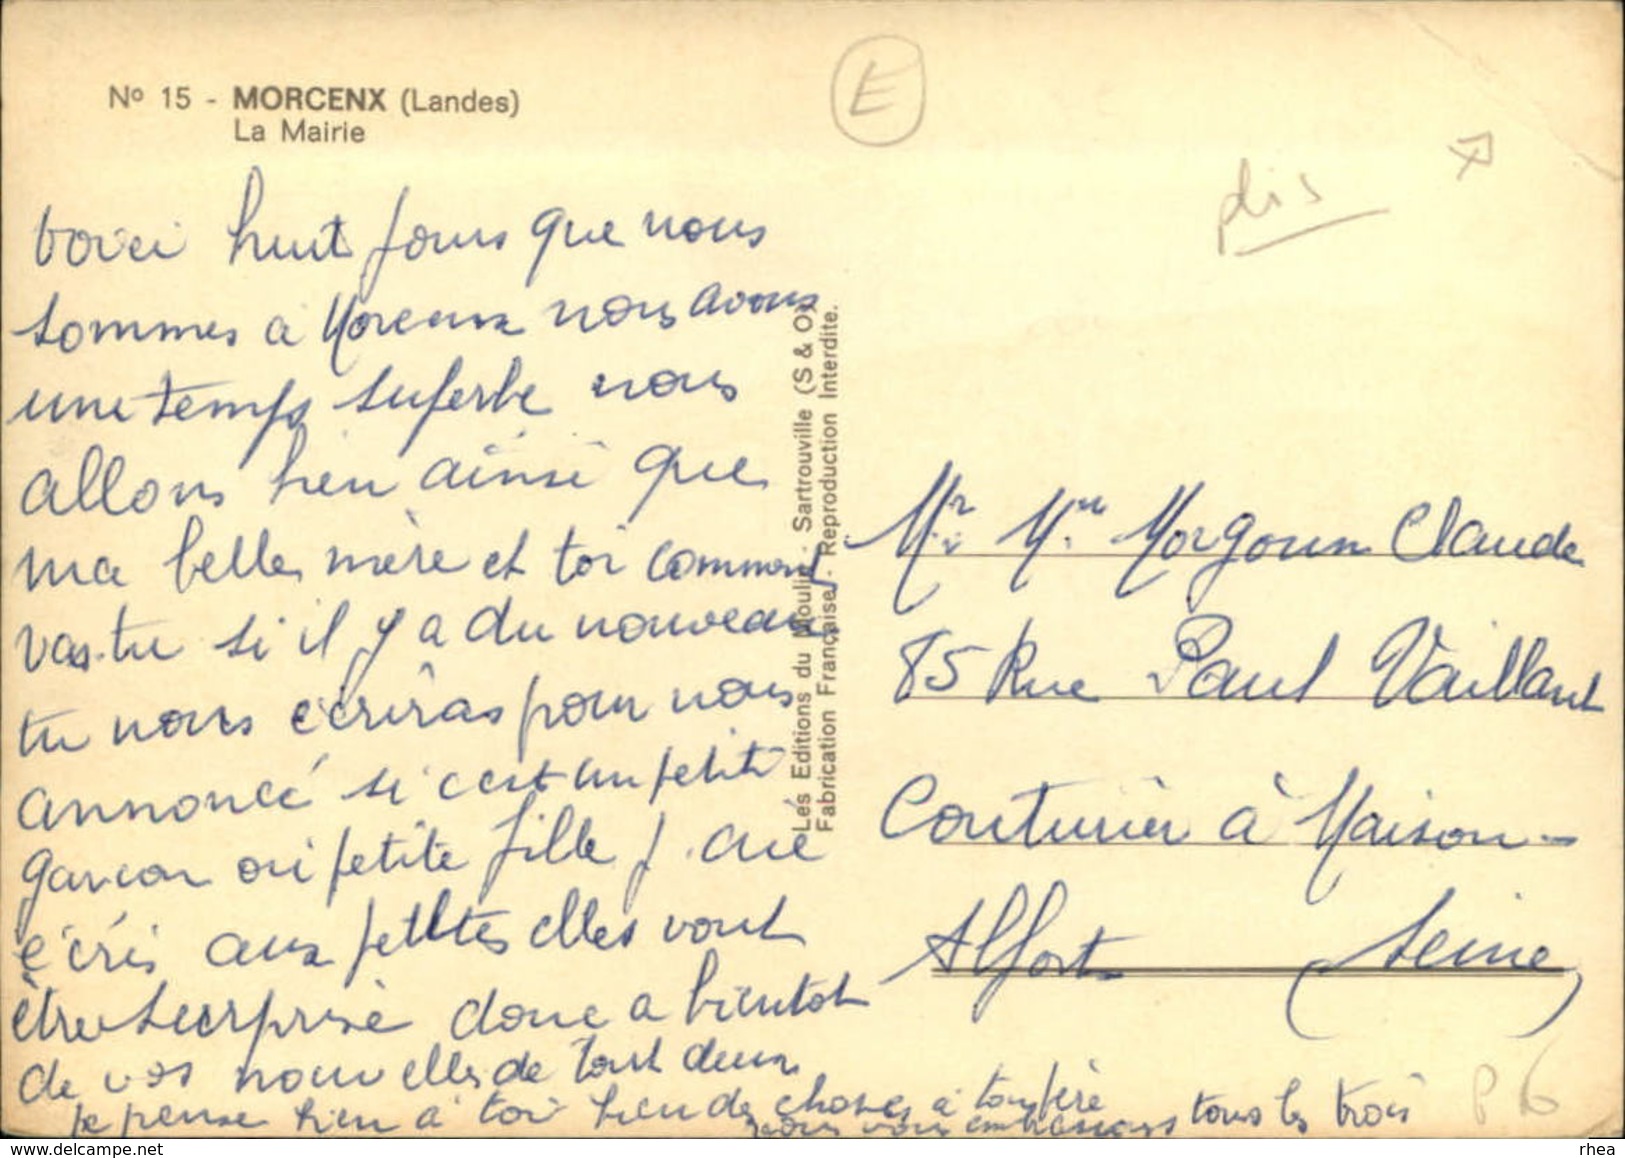 Nº 15 - MORCENX (Landes)
La Mairie
E
plis
voici huit jours que nous
sommes a Morcenx nous avons
une temps superbe nous
allons bien ainsi que
ma belle mère et toi comment
vas-tu si il y a du nouveau
tu nous écriras pour nous
annoncé si c'est un petit
garcon ou petite fille j. aie
écris aux petites elles vont
être surprise donc a bientot
de vos nouvelles de tout deux
je pense bien à toi bien des choses a ton père
nous vous embrassons tous les trois
Les Editions du Moulin - Sartrouville (S & O)
Fabrication Française - Reproduction Interdite.
Mr Mme Morgoun Claude
85 Rue Paul Vaillant
Couturier à Maison-
Alfort (Seine)
P6
rhea